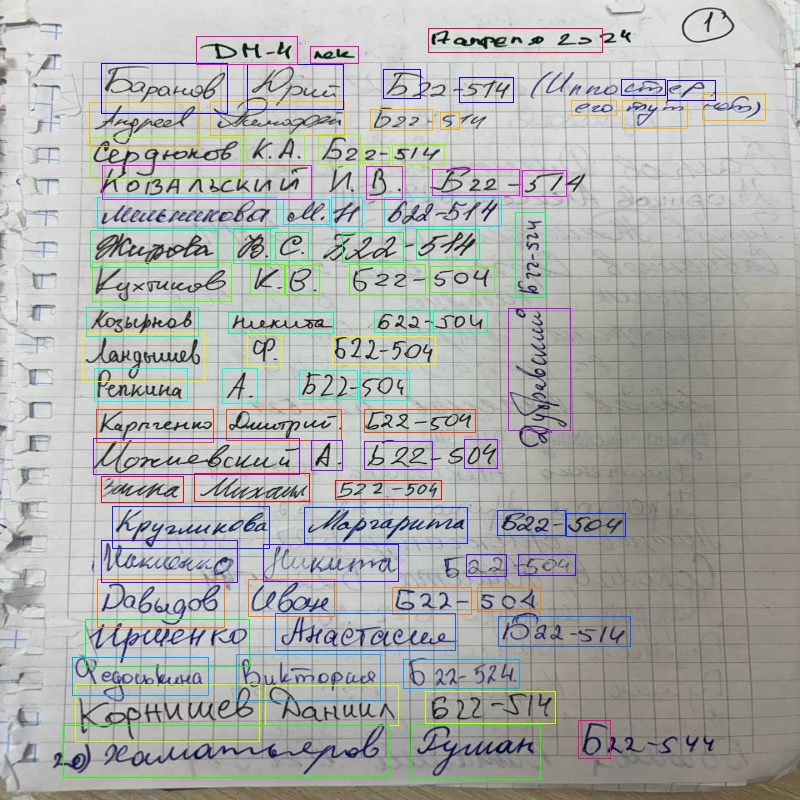 1
ДМ-4 лек 7 апреля 2024
Баранов Юрий Б22-514 (Иппостер,
его тут нет)
Андреев Тимофей Б22-514
Сердюков К.А. Б22-514
Ковальский И.В. Б22-514
Мельникова М.Н Б22-514
Жирова В.С. Б22-514
Кухтиков К.В. Б22-504
Козырнов Никита Б22-504
Ландышев Ф. Б22-504
Репкина А. Б22-504
Карпченко Дмитрий. Б22-504
Можиевский А. Б22-504
Михаил Б22-504
Кругликова Маргарита Б22-504
Никита Б22-504
Давыдов Иван Б22-504
Ирщенко Анастасия Б22-514
Федоськина Виктория Б22-524
Корнишев Даниил Б22-514
20) Хаматьяров Руман Б22-544
Дубравский Б22-524